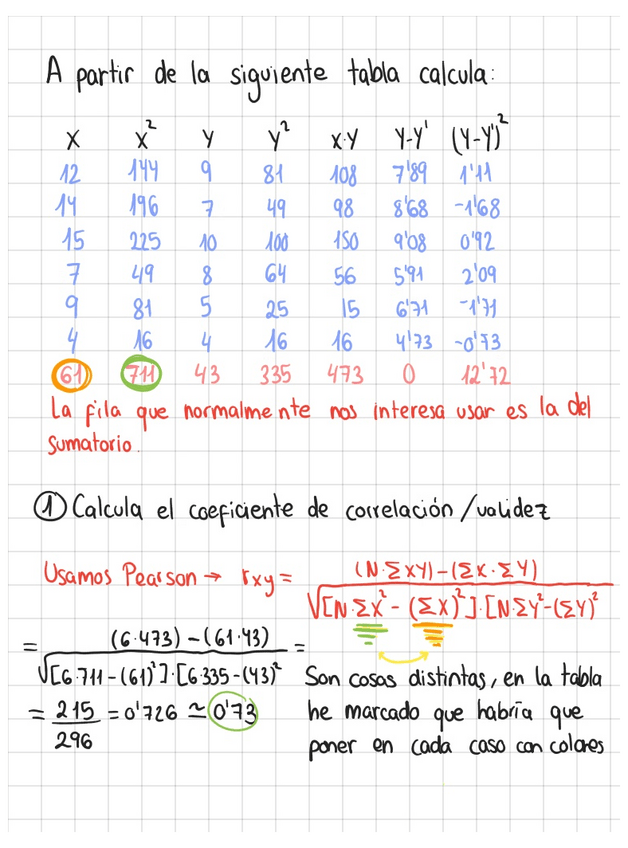 A partir de la siguiente tabla calcula:
X X² Y Y² X·Y Y-Y' (Y-Y')²
12 144 9 81 108 7'89 1'11
14 196 7 49 98 8'68 -1'68
15 225 10 100 150 9'08 0'92
7 49 8 64 56 5'91 2'09
9 81 5 25 15 6'71 -1'71
4 16 4 16 16 4'73 -0'73
61 711 43 335 473 0 12'72
La fila que normalmente nos interesa usar es la del
sumatorio.
① Calcula el coeficiente de correlación/validez
Usamos Pearson → rxy = (N·ΣXY)-(ΣX·ΣY) / √[N·ΣX²-(ΣX)²]·[N·ΣY²-(ΣY)²
= (6·473)-(61·43) / √[6·711-(61)²]·[6·335-(43)² =
= 215/296 = 0'726 ≃ 0'73
Son cosas distintas, en la tabla
he marcado que habría que
poner en cada caso con colores